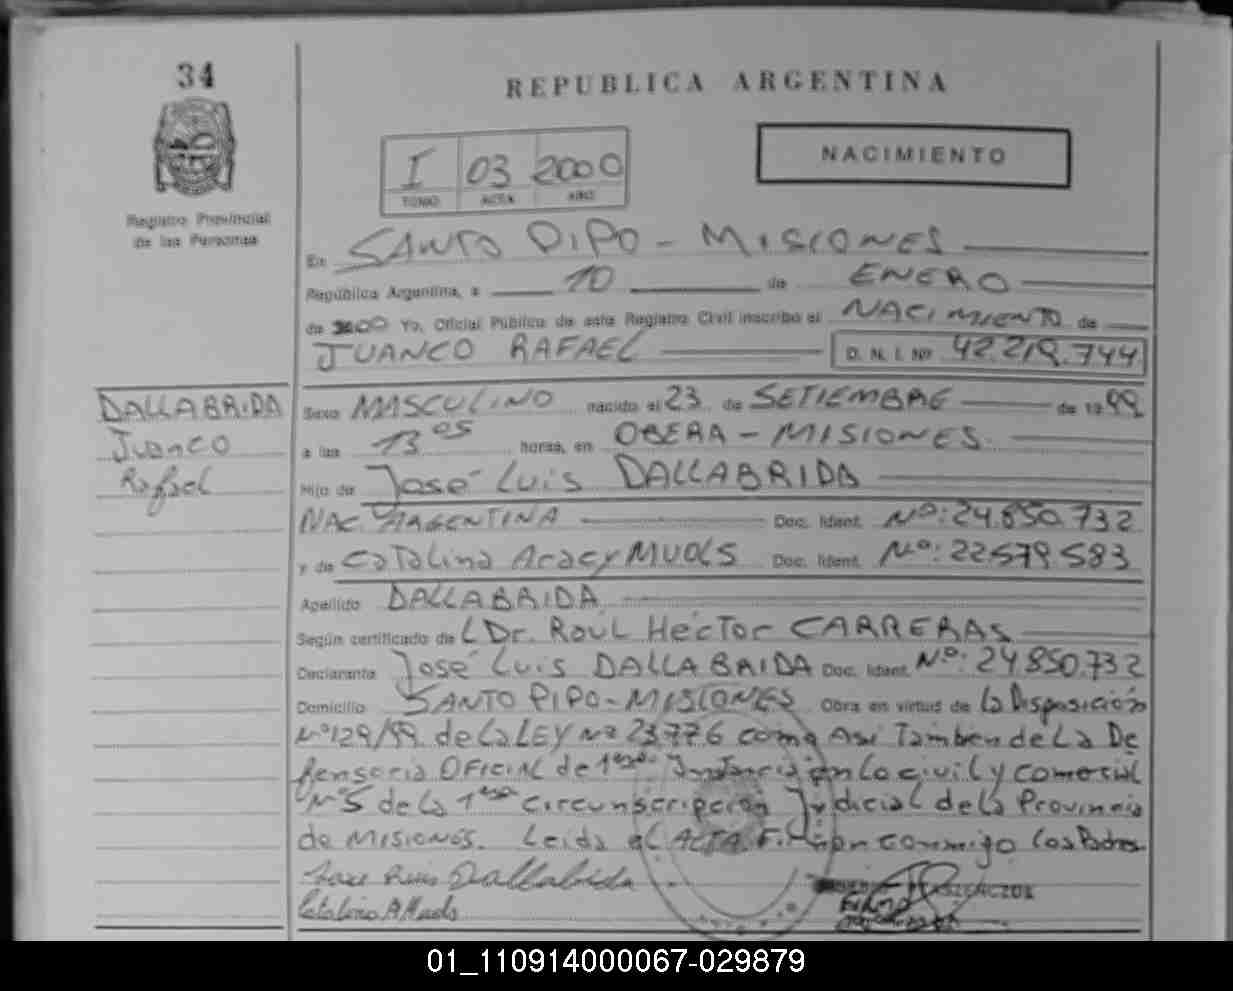 34
REPUBLICA ARGENTINA
NACIMIENTO
I 03 2000
TOMO ACTA AÑO
Registro Provincial
de las Personas
En SANTO PIPO - MISIONES
República Argentina, a 10 de ENERO
de 2000 Yo, Oficial Público de este Registro Civil inscribo el NACIMIENTO de
JUANCO RAFAEL D. N. I. Nº 42.219.744
DALLABRIDA
Juanco
Rafael
Sexo MASCULINO nacido el 23 de SETIEMBRE de 1999
a las 13 05 horas, en OBERA - MISIONES
Hijo de José Luis DALLABRIDA
NAC. ARGENTINA Doc. Ident. Nº: 24.850.732
y de Catalina Aracy MUOLS Doc. Ident. Nº: 22.579.583
Apellido DALLABRIDA
Según certificado de L Dr. RAUL Héctor CARRERAS
Declarante José Luis DALLABRIDA Doc. Ident. Nº: 24.850.732
Domicilio SANTO PIPO - MISIONES Obra en virtud de La Disposición
Nº129/99 de La LEY Nº 23776 como Asi Tambien de La De
fensoria OFICIAL de 1era Instancia en Lo civil y comercial
Nº5 de La 1era circunscripción Judicial de La Provincia
de MISIONES. Leida el ACTA Firman conmigo Los Padres
Jose Luis Dallabrida
Catalina A
01_110914000067-029879